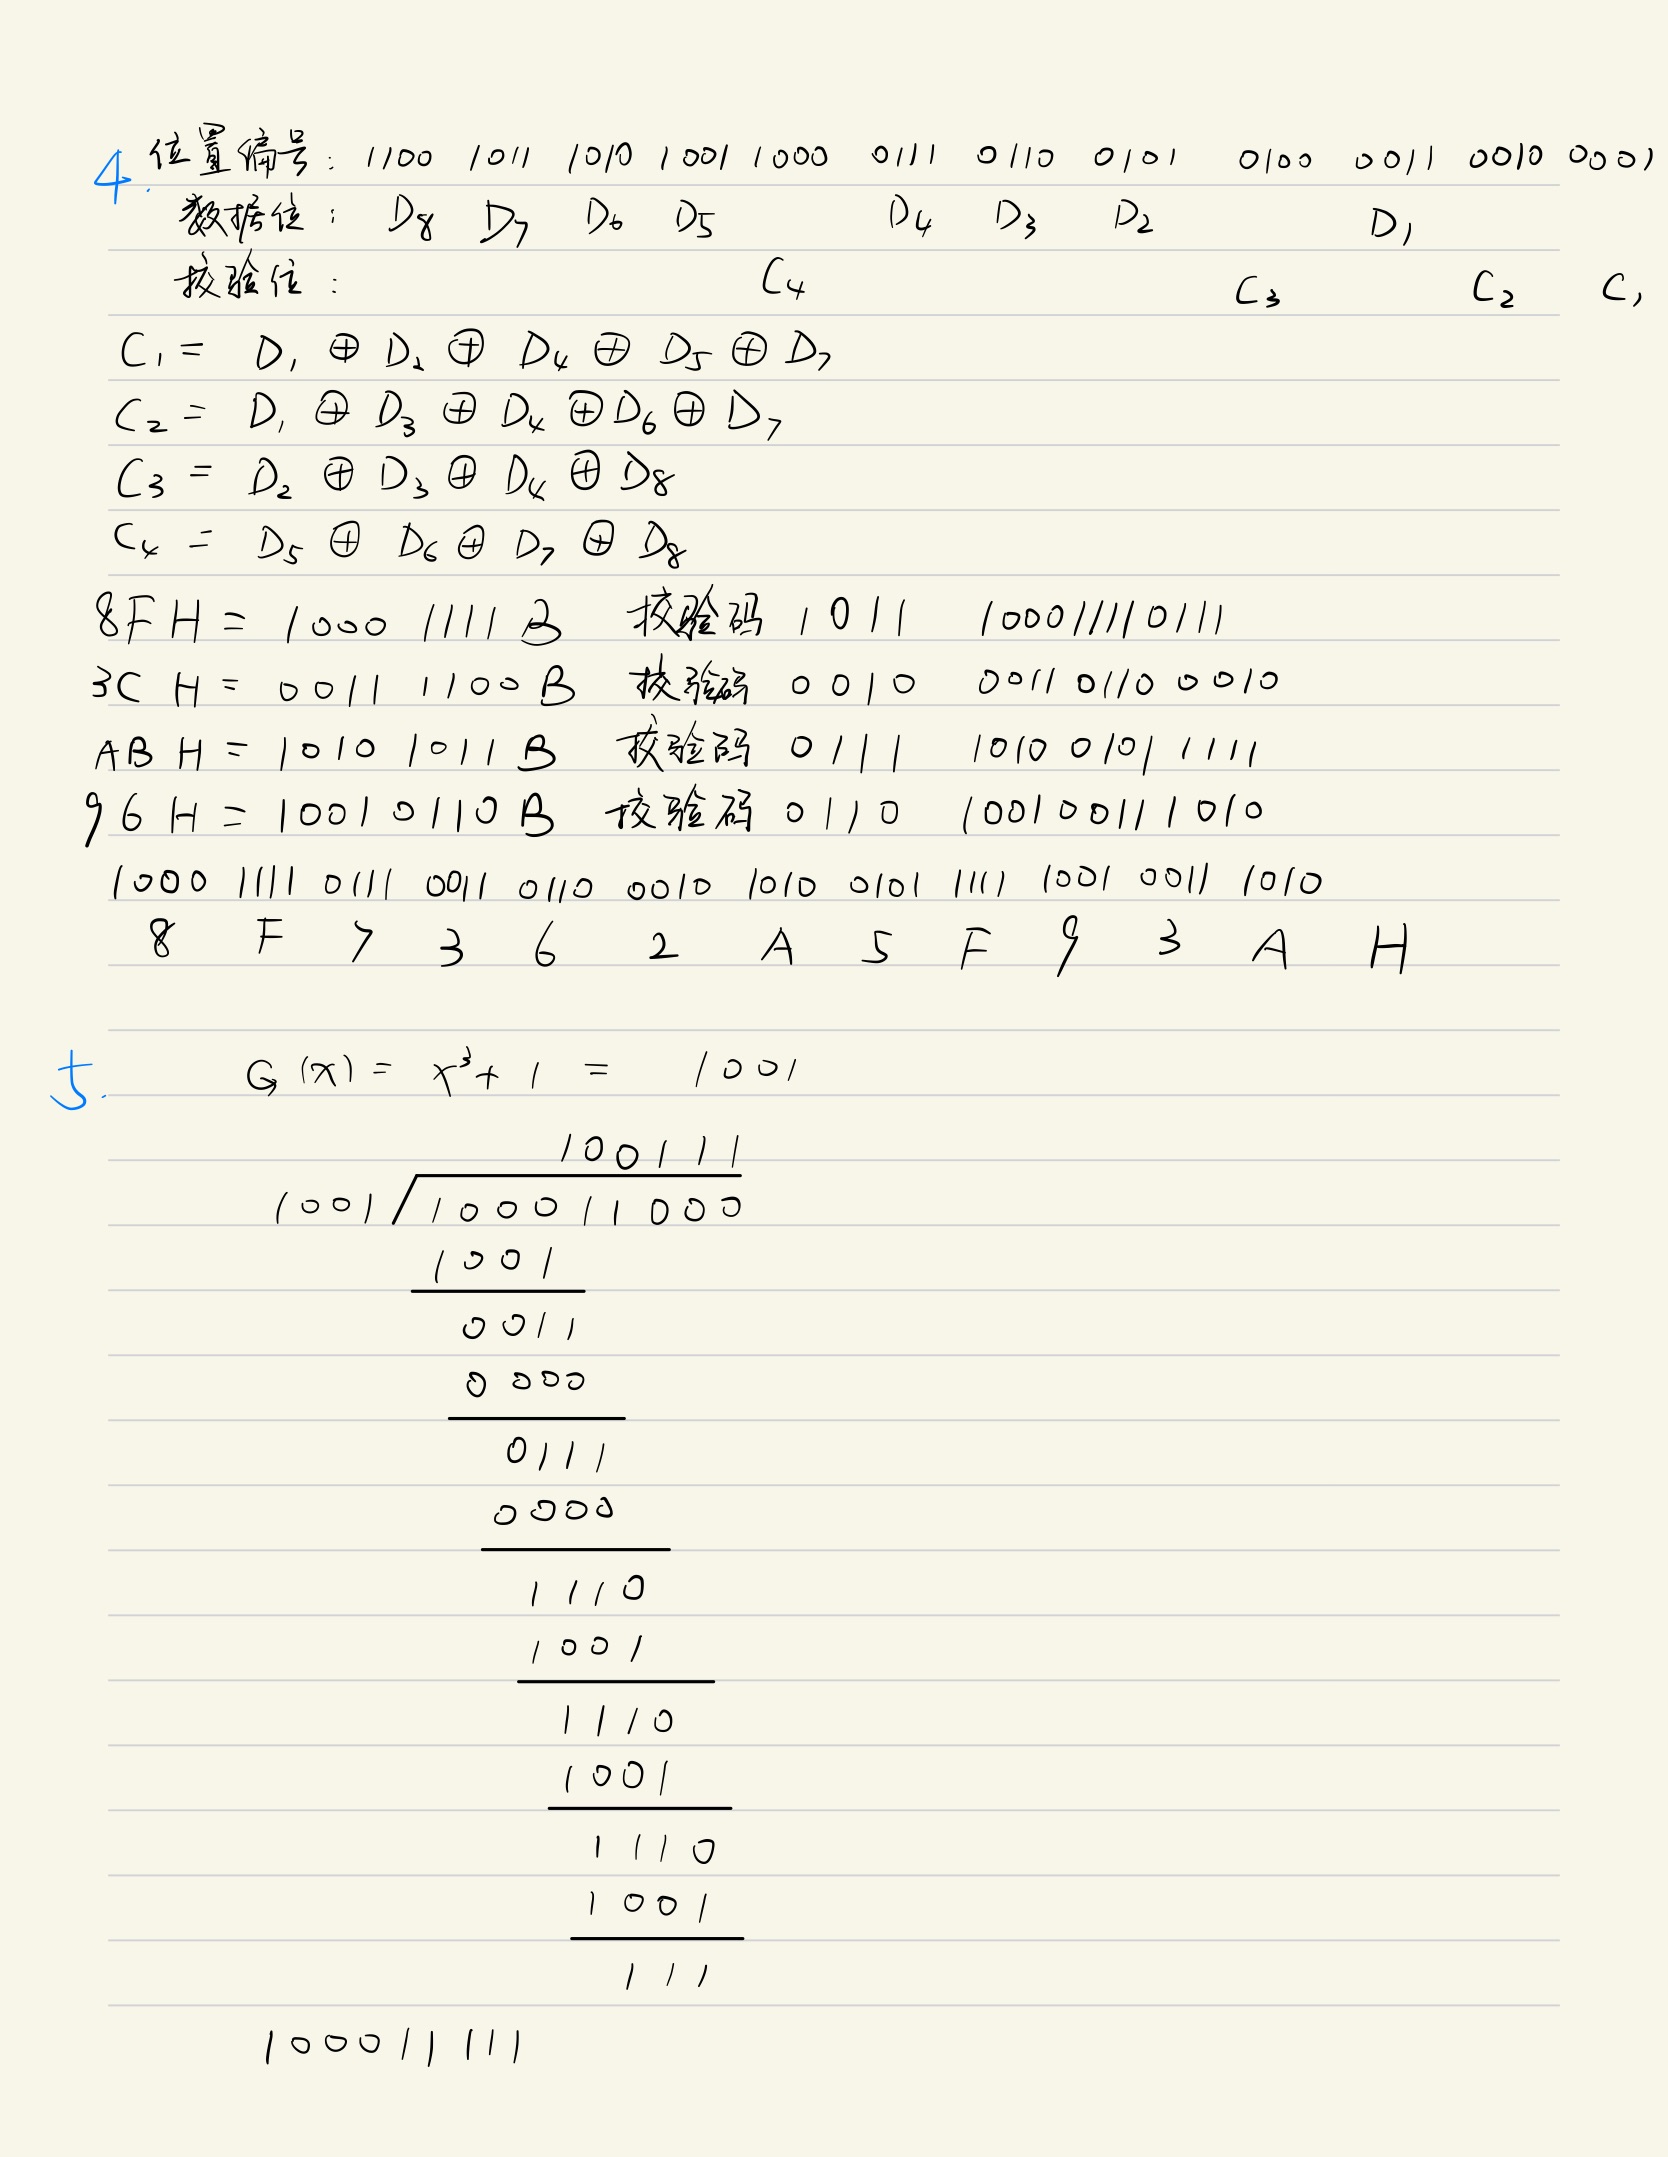 4. 位置编号: 1100 1011 1010 1001 1000 0111 0110 0101 0100 0011 0010 0001
数据位: D₈ D₇ D₆ D₅ D₄ D₃ D₂ D₁
校验位: C₄ C₃ C₂ C₁
C₁ = D₁ ⊕ D₂ ⊕ D₄ ⊕ D₅ ⊕ D₇
C₂ = D₁ ⊕ D₃ ⊕ D₄ ⊕ D₆ ⊕ D₇
C₃ = D₂ ⊕ D₃ ⊕ D₄ ⊕ D₈
C₄ = D₅ ⊕ D₆ ⊕ D₇ ⊕ D₈
8FH = 1000 1111 B 校验码 1011 100011110111
3CH = 0011 1100 B 校验码 0010 0011 0110 0010
ABH = 1010 1011 B 校验码 0111 1010 0101 1111
96H = 10010110B 校验码 0110 1001 0011 1010
1000 1111 0111 0011 0110 0010 1010 0101 1111 1001 0011 1010
8 F 7 3 6 2 A 5 F 9 3 A H
5. G(x) = x³+1 = 1001
100111
1001 / 100011000
1001
0011
0000
0111
0000
1110
1001
1110
1001
1110
1001
111
100011111